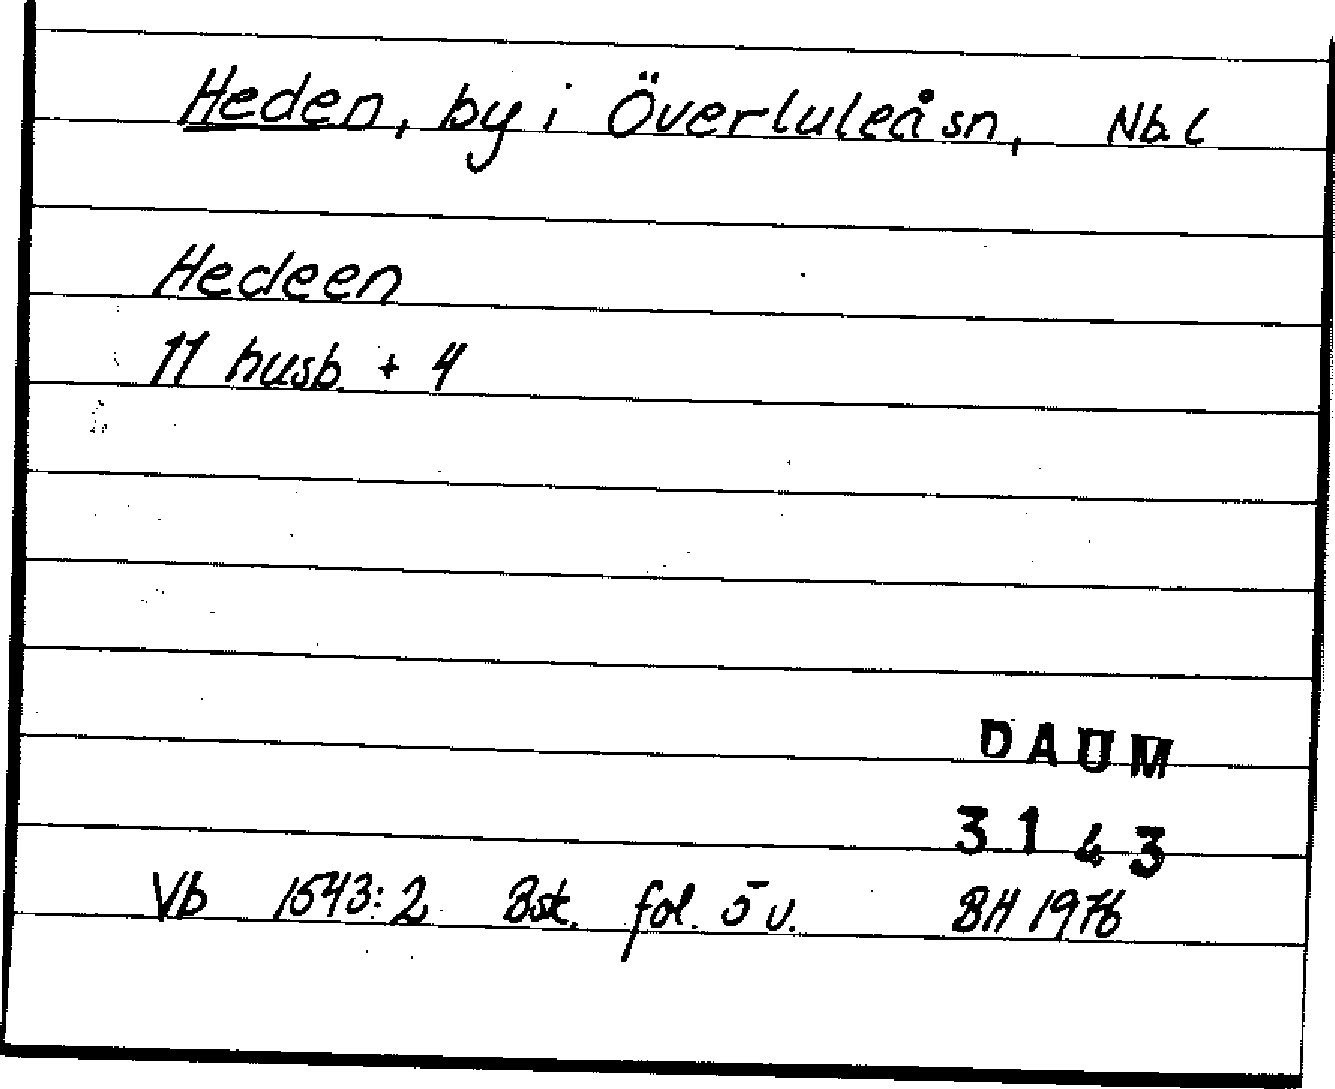 Heden, by i Överluleå sn, Nb. L
Hedeen
11 husb. + 4
DAUM
3143
Vb 1543:2 Bsk. fol. 5 v. BH 1976